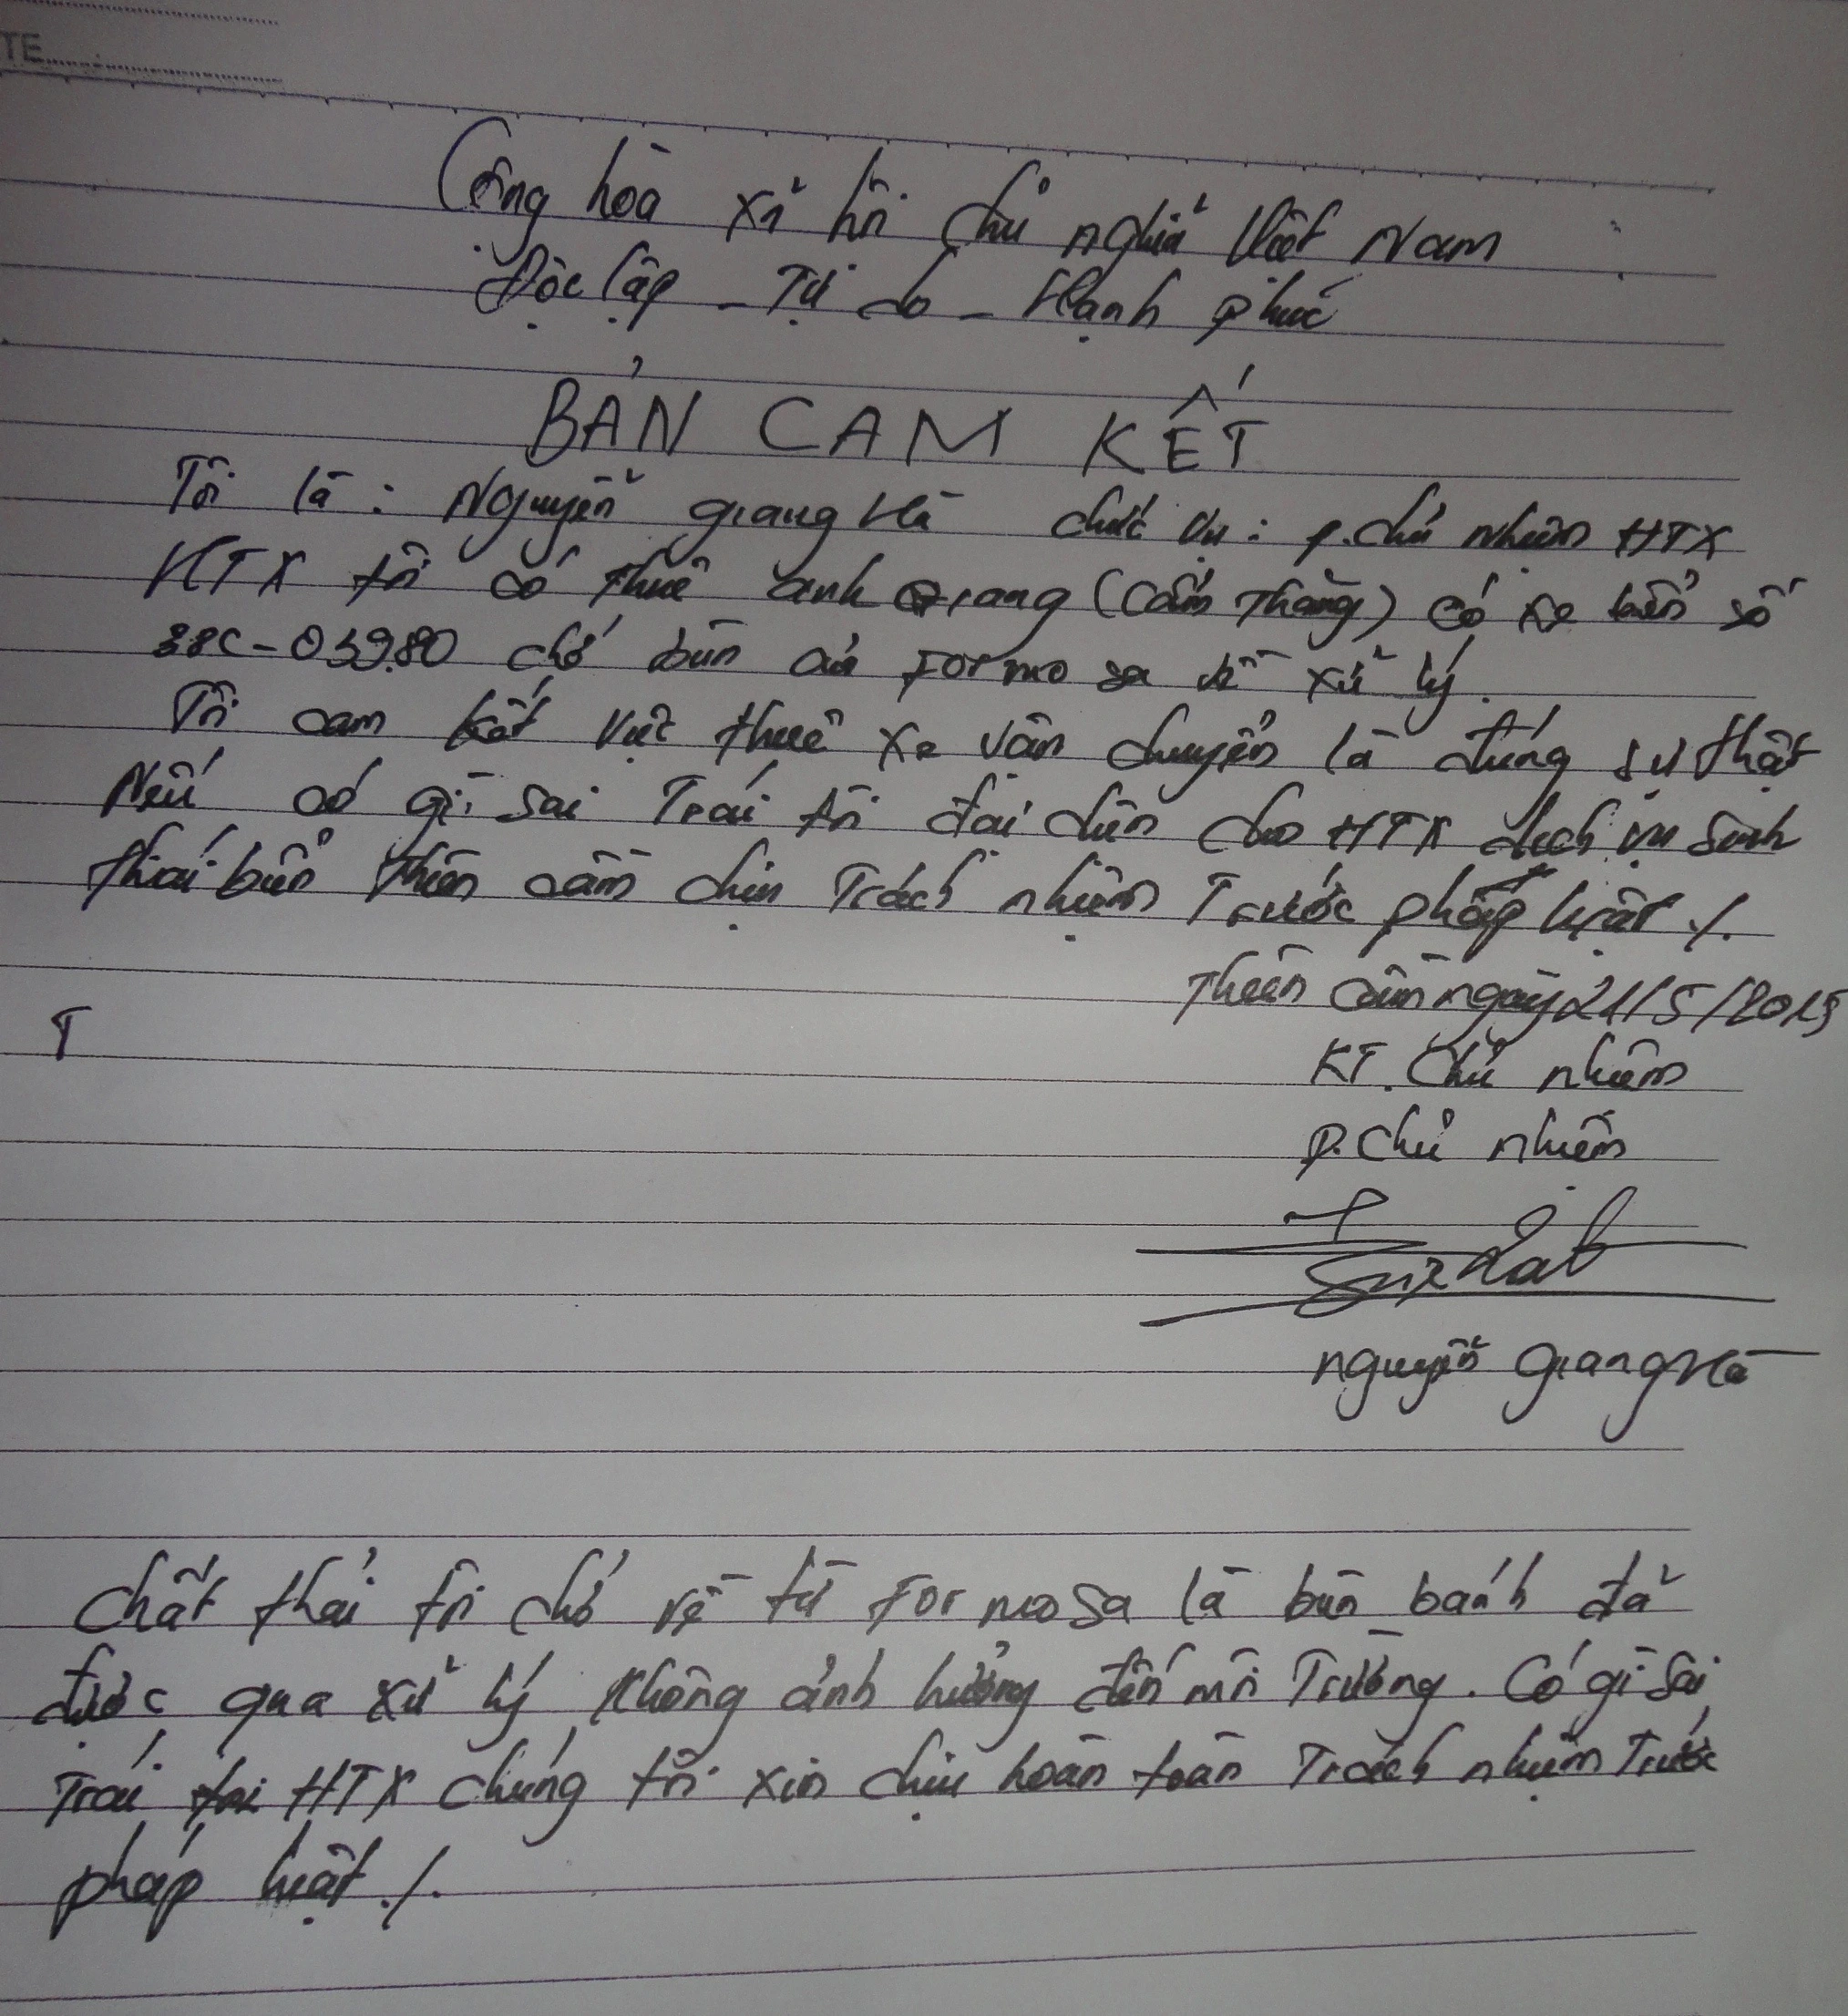 TE
Cộng hòa xã hội chủ nghĩa Việt Nam
Độc lập - Tự do - Hạnh phúc
BẢN CAM KẾT
Tôi là : Nguyễn giang Hà chức vụ : p.chủ nhiệm HTX
HTX tôi có thuê anh Giang (Cẩm Thăng) có xe biển số
38C-039.80 chở bùn của Formosa về xử lý.
Tôi cam kết việc thuê xe vận chuyển là đúng sự thật
Nếu có gì sai Trái tôi đại diện cho HTX dịch vụ sinh
thái biển thiên cầm chịu Trách nhiệm Trước pháp luật ./.
Thiên cầm ngày 21/5/2015
T
KT. Chủ nhiệm
P. Chủ nhiệm
nguyễn giang Hà
Chất thải tôi chở về từ Formosa là bùn bánh đã
được qua xử lý không ảnh hưởng đến môi Trường. Có gì sai
Trái HTX chúng tôi xin chịu hoàn toàn Trách nhiệm Trước
pháp luật ./.